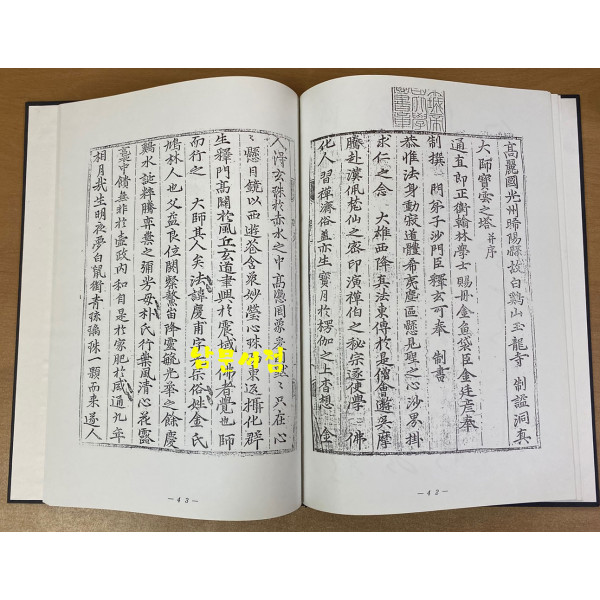 高麗國光州晞陽縣故白鷄山玉龍寺 制謚洞真
大師寶雲之塔 并序
通直郎正衛翰林學士賜丹金魚袋臣金廷彦奉
制撰 門弟子沙門臣釋玄可奉 制書
恭惟法身動寂道體希夷塵區懸見聖之心沙界掛
求仁之念 大雄西降真法東傳於是僧會遊吳摩
騰赴漢佩梵仙之密印演禪伯之秘宗遂使學 佛
化人習禪濟俗盖亦生寶月於楞伽之上杳想 金
人 得玄珠於赤水之中高懸 只在心
懸目鏡以西遊若含衆妙瑩心珠 東還擁化群
生釋門高闢於風丘玄道聿興於震域 佛者覺也師
而行之 大師其人矣法諱慶甫字 宗俗姓金氏
鳩林人也父益良位閼粲鼇苗降靈毓光華之餘慶
鷄水誕粹騰弈葉之彌芳母朴氏行藥風清心花露
稟中饋無非於壺政內和自是於家肥於咸通九年
相月哉生明夜夢白鼠銜青琉璃珠一顆而來遂人
남문서점
－43－
－42－